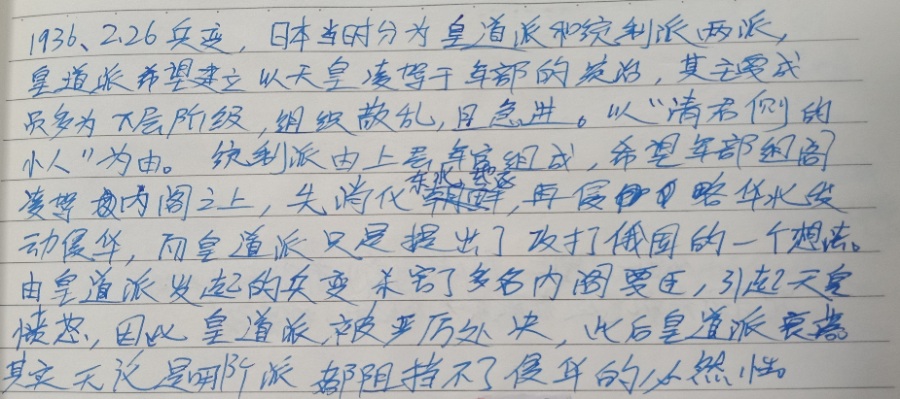 1936、2.26兵变，日本当时分为皇道派和统制派两派，
皇道派希望建立以天皇凌驾于军部的统治，其主要成
员多为下层阶级，组织散乱，且急进。以“清君侧的
小人”为由。统制派由上层军官组成，希望军部组阁
凌驾内阁之上，先消化东北，再侵略华北发
动侵华，而皇道派只是提出了攻打俄国的一个想法。
由皇道派发起的兵变杀害了多名内阁要臣，引起天皇
愤怒，因此皇道派被严厉处决，此后皇道派衰落。
其实无论是哪个派都阻挡不了侵华的必然性。